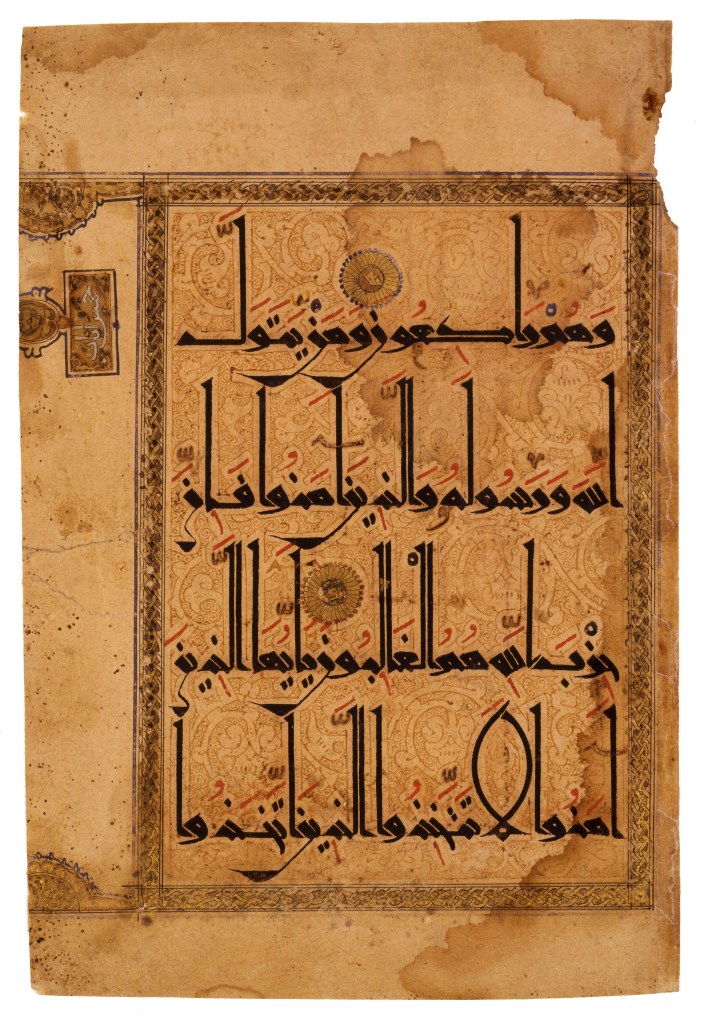 وَهُمْ رَاكِعُونَ وَمَنْ يَتَوَلَّ
اللّٰهَ وَرَسُولَهُ وَالَّذِينَ اٰمَنُوا فَإِنَّ
حِزْبَ اللّٰهِ هُمُ الْغَالِبُونَ يَايُّهَا الَّذِينَ
اٰمَنُوا لَا تَتَّخِذُوا الَّذِينَ اتَّخَذُوا